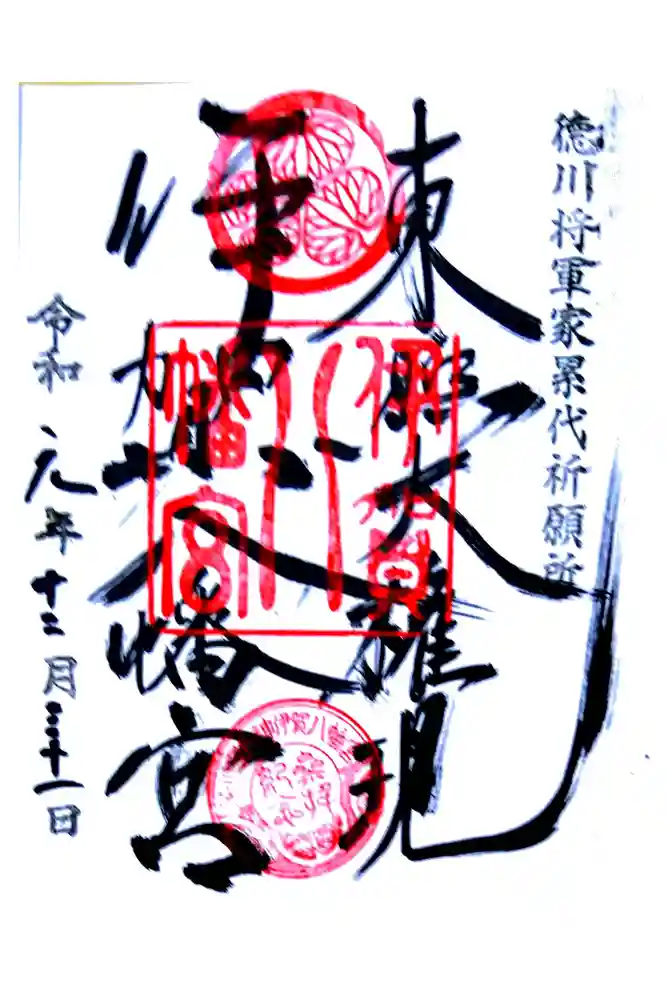 徳川将軍家累代祈願所
東照大権現
伊賀八幡宮
伊賀
八
幡宮
令和元年十二月三十一日